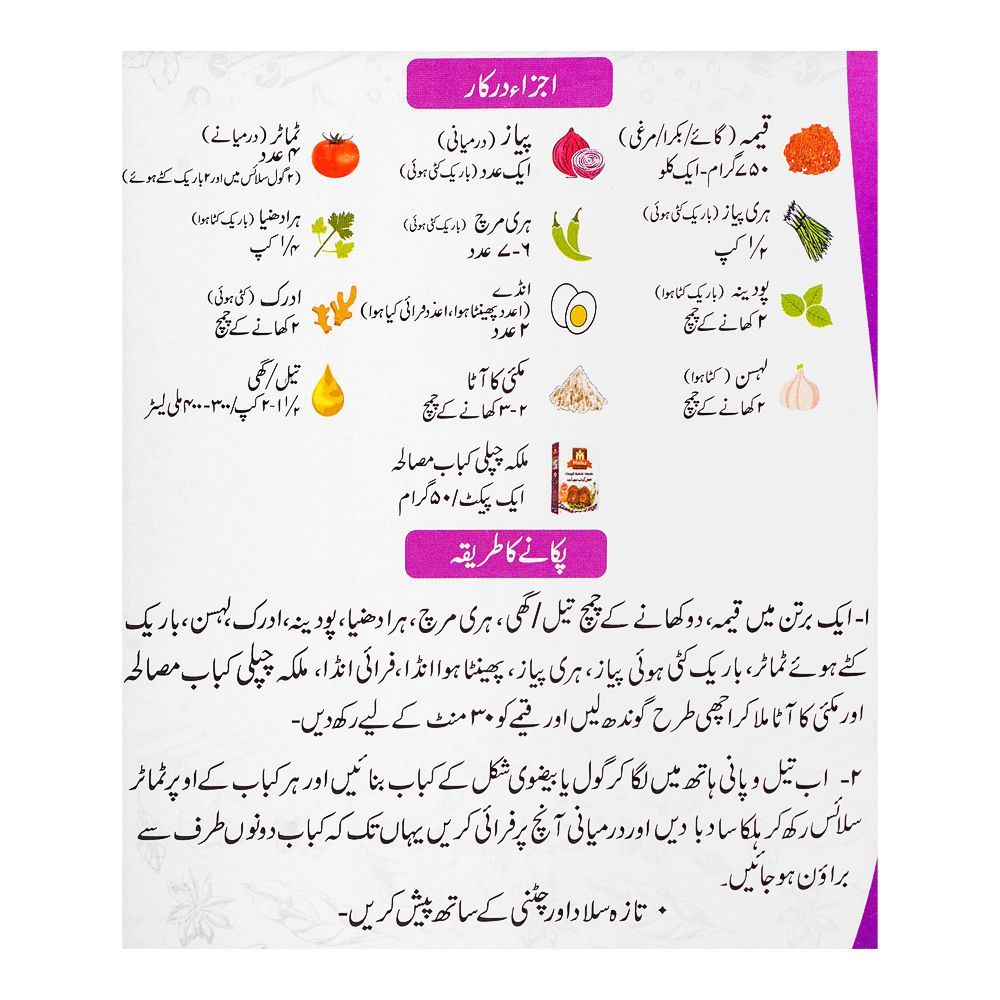 اجزاء درکار
قیمہ (گائے/بکرا/مرغی)
۷۵۰ گرام-ایک کلو
پیاز (درمیانی)
ایک عدد (باریک کٹی ہوئی)
ٹماٹر (درمیانے)
۴ عدد
(۲ گول سلائس میں اور ۲ باریک کٹے ہوئے)
ہری پیاز (باریک کٹی ہوئی)
۱/۲ کپ
ہری مرچ (باریک کٹی ہوئی)
۶-۷ عدد
ہرا دھنیا (باریک کٹا ہوا)
۱/۴ کپ
پودینہ (باریک کٹا ہوا)
۲ کھانے کے چمچ
انڈے
(۱عدد پھینٹا ہوا، ۱عدد فرائی کیا ہوا)
۲ عدد
ادرک (کٹی ہوئی)
۲ کھانے کے چمچ
لہسن (کٹا ہوا)
۲ کھانے کے چمچ
مکئی کا آٹا
۲-۳ کھانے کے چمچ
تیل/گھی
۱ ۱/۲-۲ کپ/۳۰۰-۴۰۰ ملی لیٹر
ملکہ چپلی کباب مصالحہ
ایک پیکٹ/۵۰ گرام
پکانے کا طریقہ
۱- ایک برتن میں قیمہ، دو کھانے کے چمچ تیل/گھی، ہری مرچ، ہرا دھنیا، پودینہ، ادرک، لہسن، باریک
کٹے ہوئے ٹماٹر، باریک کٹی ہوئی پیاز، ہری پیاز، پھینٹا ہوا انڈا، فرائی انڈا، ملکہ چپلی کباب مصالحہ
اور مکئی کا آٹا ملا کر اچھی طرح گوندھ لیں اور قیمے کو ۳۰ منٹ کے لیے رکھ دیں-
۲- اب تیل و پانی ہاتھ میں لگا کر گول یا بیضوی شکل کے کباب بنائیں اور ہر کباب کے اوپر ٹماٹر
سلائس رکھ کر ہلکا سا دبا دیں اور درمیانی آنچ پر فرائی کریں یہاں تک کہ کباب دونوں طرف سے
براؤن ہو جائیں۔
• تازہ سلاد اور چٹنی کے ساتھ پیش کریں-